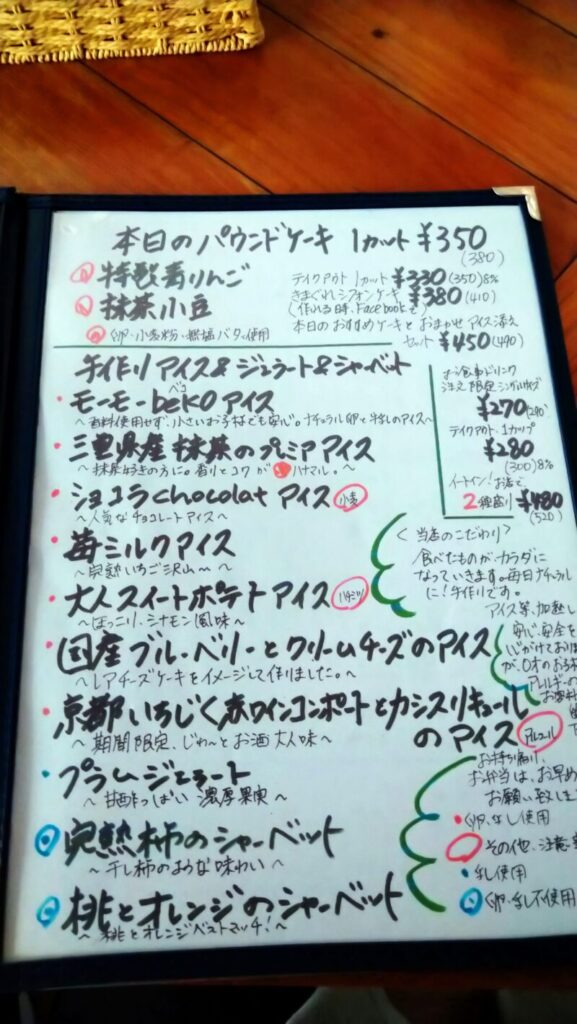 本日のパウンドケーキ 1カット ¥350
(380)
特製青りんご
抹茶小豆
卵・小麦粉・無塩バター使用
テイクアウト 1カット ¥330 (350) 8%
きまぐれシフォンケーキ ¥380 (410)
(作れる時、Facebookで)
本日のおすすめケーキと おまかせアイス添え
セット ¥450 (490)
手作りアイス&ジェラート&シャーベット
モーモー beko アイス
ベコ
~香料使用せず、小さいお子様でも安心。ナチュラル卵と牛乳のアイス~
三重県産 抹茶のプレミアアイス
~抹茶好きの方に。香りとコクがハナマル。~
ショコラ chocolat アイス 小麦
~人気なチョコレートアイス~
苺ミルクアイス
~完熟いちご沢山~
大人スイートポテトアイス
~ほっこり、シナモン風味~
国産ブルーベリーとクリームチーズのアイス
~レアチーズケーキをイメージして作りました。~
京都いちじく赤ワインコンポートとカシスリキュール
のアイス アルコール
~期間限定、じわ~とお酒 大人味~
プラムジェラート
~甘酢っぱい 濃厚果実~
完熟柿のシャーベット
~干し柿のような味わい~
桃とオレンジのシャーベット
~桃とオレンジベストマッチ!~
お食事ドリンク
注文限定 シングルサイズ
¥270 (290)
テイクアウト・1カップ
¥280
(300) 8%
イートイン!お店で
2種盛り ¥480
(520)
<当店のこだわり>
食べたものがカラダに
なっていきます。毎日ナチュラル
に!手作りです。
アイス等、加熱し
安心、安全を
お持ち帰り、
お弁当は、お早め
お願い致しま
卵・乳使用
その他、注意
乳使用
卵・乳不使用